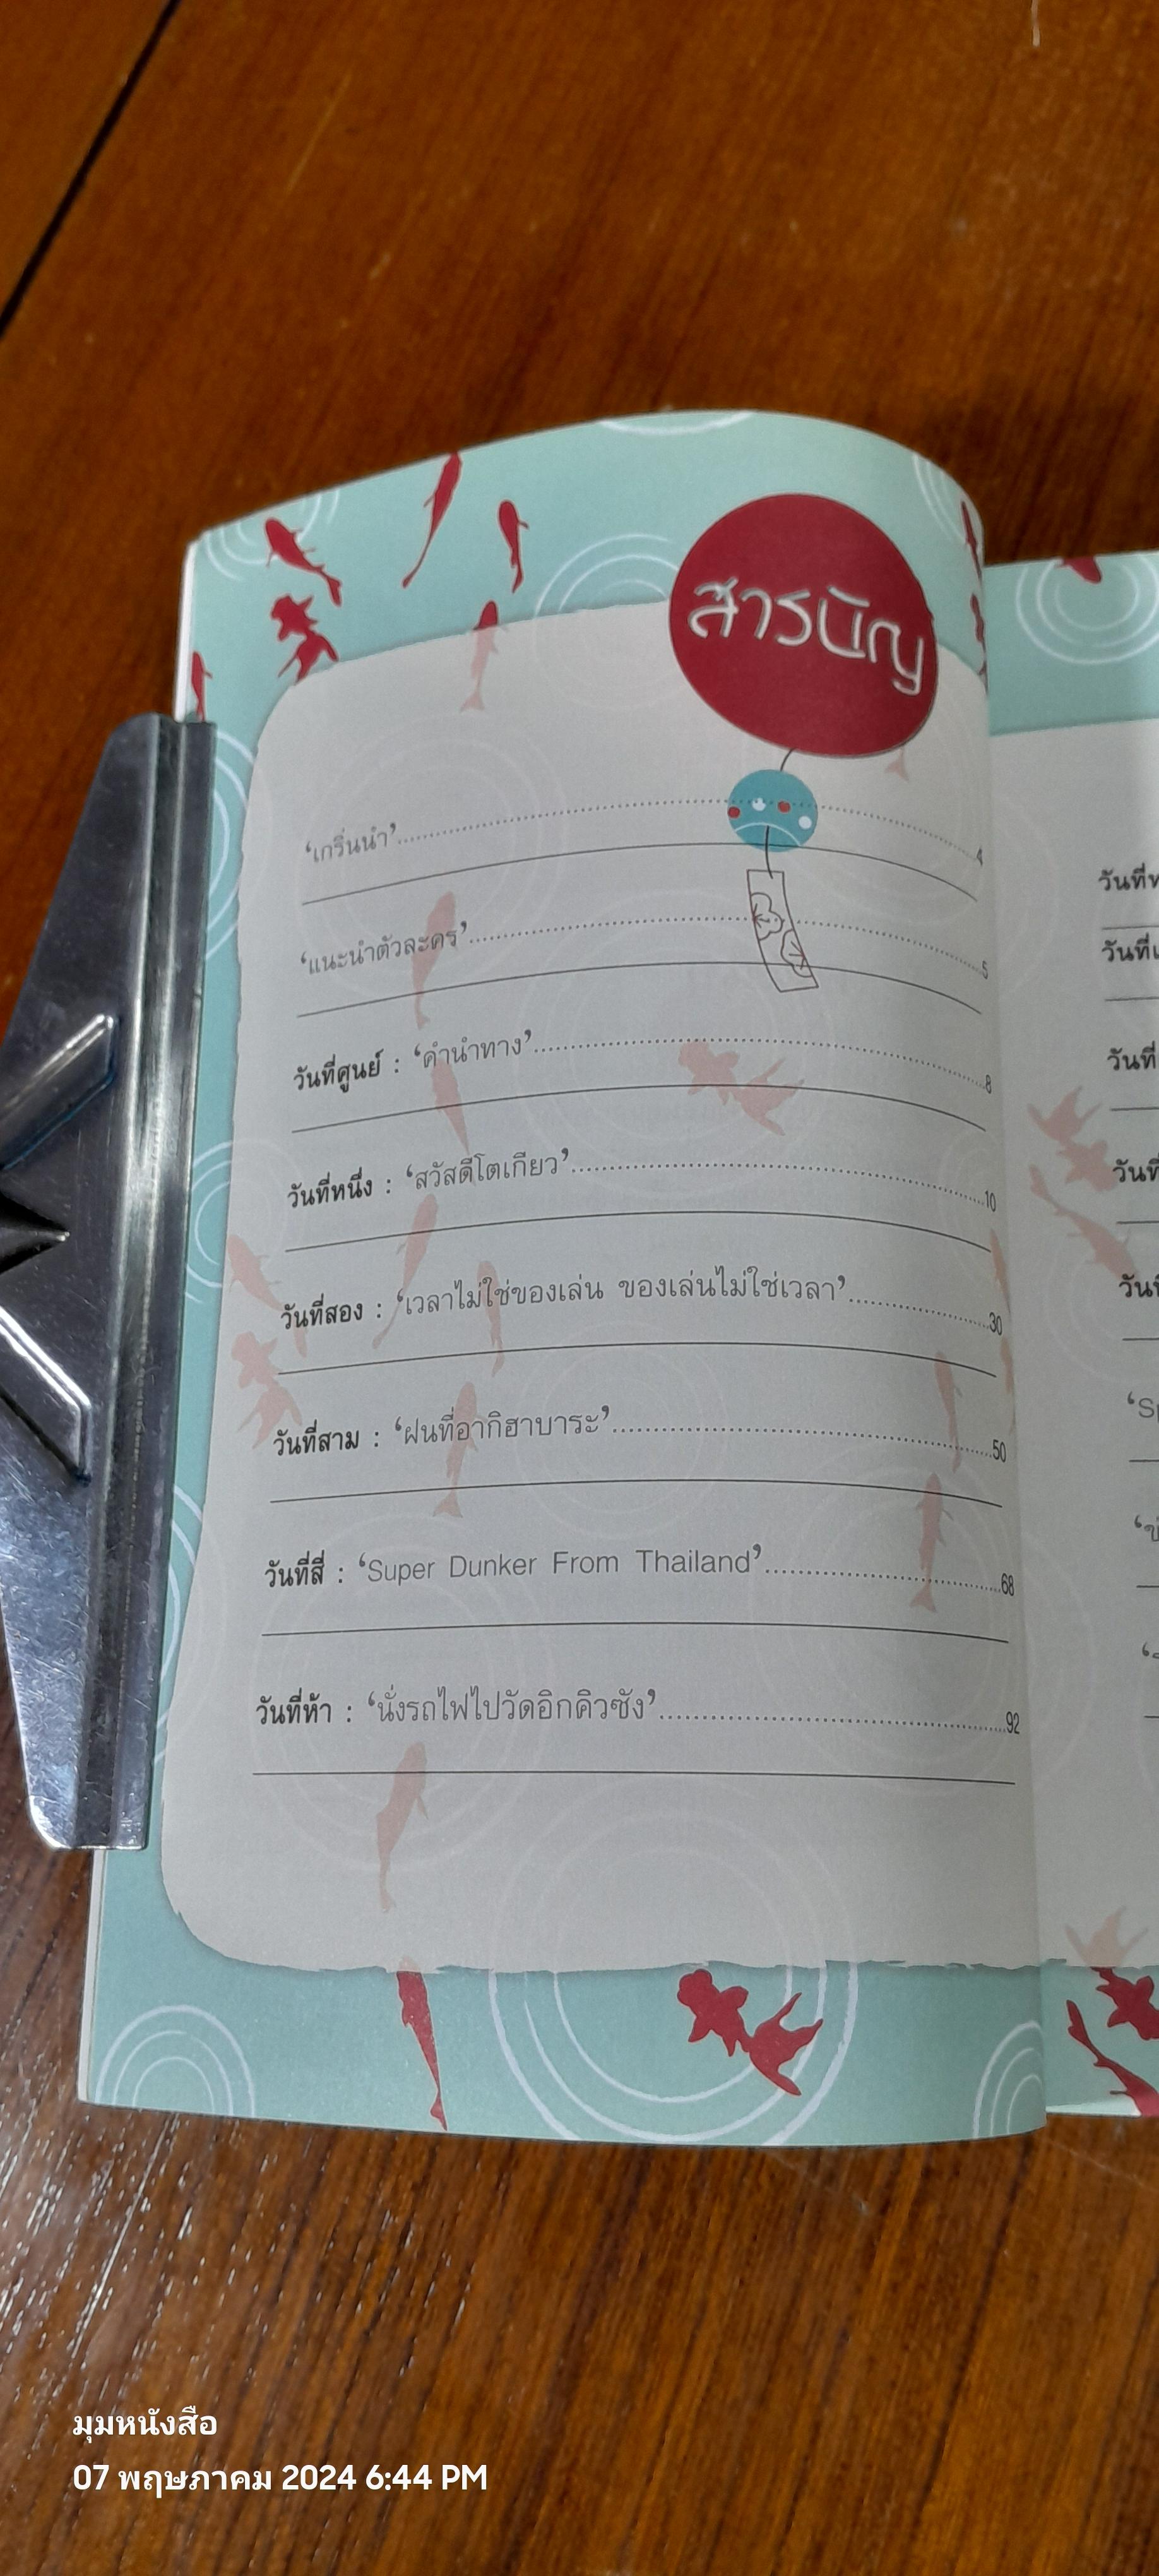 สารบัญ
‘เกริ่นนำ’........4
‘แนะนำตัวละคร’........5
วันที่ศูนย์ : ‘คำนำทาง’........8
วันที่หนึ่ง : ‘สวัสดีโตเกียว’........10
วันที่สอง : ‘เวลาไม่ใช่ของเล่น ของเล่นไม่ใช่เวลา’........30
วันที่สาม : ‘ฝนที่อากิฮาบาระ’........50
วันที่สี่ : ‘Super Dunker From Thailand’........68
วันที่ห้า : ‘นั่งรถไฟไปวัดอิกคิวซัง’........92
วันที่
วันที่
วันที่
วันที่
วันที่
มุมหนังสือ
07 พฤษภาคม 2024 6:44 PM